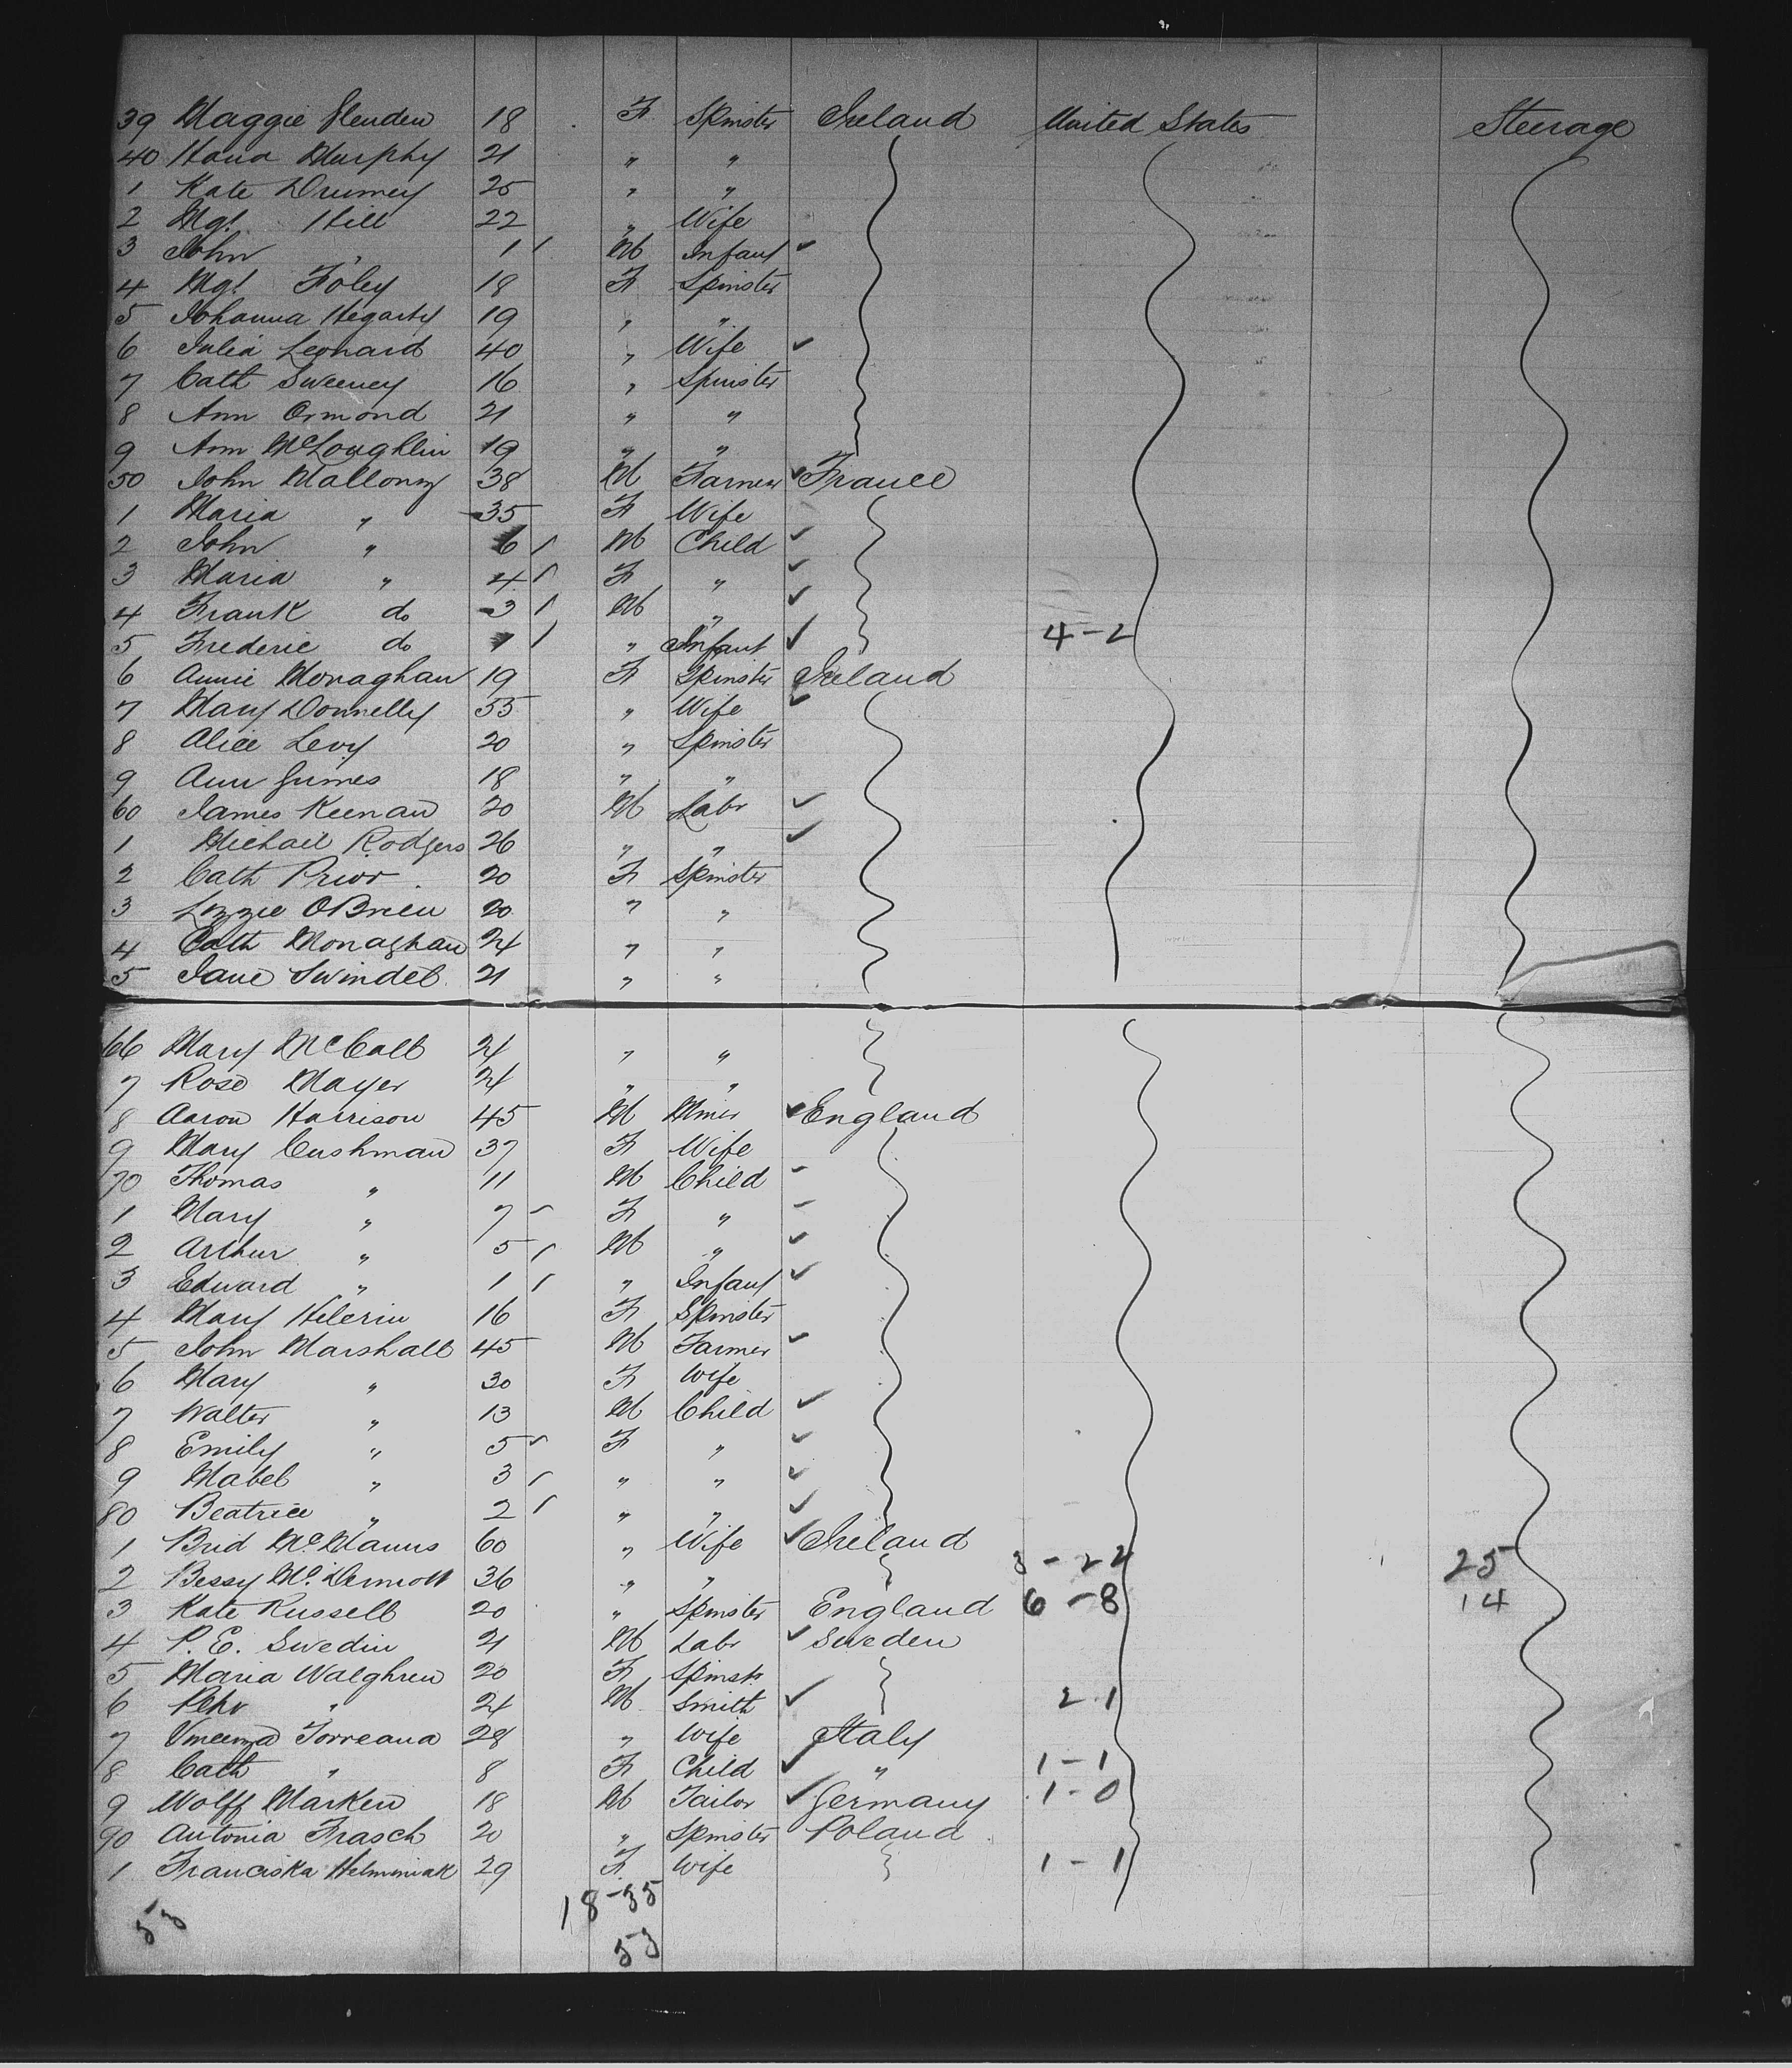 39 Maggie Glenden 18 F Spinster Ireland United States Steerage
40 Hana Murphy 21 " "
1 Kate Drumey 25 " "
2 Mgt Hill 22 " Wife
3 John " 1 M Infant
4 Mgt Foley 18 F Spinster
5 Johanna Hegarty 19 " "
6 Julia Leonard 40 " Wife
7 Cath Sweeney 16 " Spinster
8 Ann Ormond 21 " "
9 Ann McLoughlin 19 " "
50 John Mallony 38 M Farmer France
1 Maria " 35 F Wife
2 John " 6 M Child
3 Maria " 4 F "
4 Frank do 3 M "
5 Frederic do 1 " Infant 4-2
6 Annie Monaghan 19 F Spinster Ireland
7 Mary Donnelly 55 " Wife
8 Alice Levy 20 " Spinster
9 Ann Grimes 18 " "
60 James Keenan 20 M Labr
1 Michael Rodgers 26 " "
2 Cath Prior 20 F Spinster
3 Lizzie OBrien 20 " "
4 Cath Monaghan 24 " "
5 Jane Swindel 21 " "
66 Mary McCall 24 " "
7 Rose Mayer 24 " "
8 Aaron Harrison 45 M Miner England
9 Mary Cushman 37 F Wife
70 Thomas " 11 M Child
1 Mary " 7 F "
2 Arthur " 5 M "
3 Edward " 1 " Infant
4 Mary Hilerin 16 F Spinster
5 John Marshall 45 M Farmer
6 Mary " 30 F Wife
7 Walter " 13 M Child
8 Emily " 5 F "
9 Mabel " 3 " "
80 Beatrice " 2 " "
1 Brid McManus 60 " Wife Ireland
2 Bessy McDermott 36 " " 3-22 25
3 Kate Russell 20 " Spinster England 6-8 14
4 P. E. Swedin 21 M Labr Sweden
5 Maria Walghren 20 F Spinstr
6 " 24 M Smith 2 1
7 Torreana 28 " Wife Italy
8 Cath " 8 F Child " 1-1
9 Wolff Marken 18 M Tailor Germany 1-0
90 Antonia Frasch 20 " Spinster Poland
1 Franciska Helminiak 29 F Wife 1-1
18-35
53 53